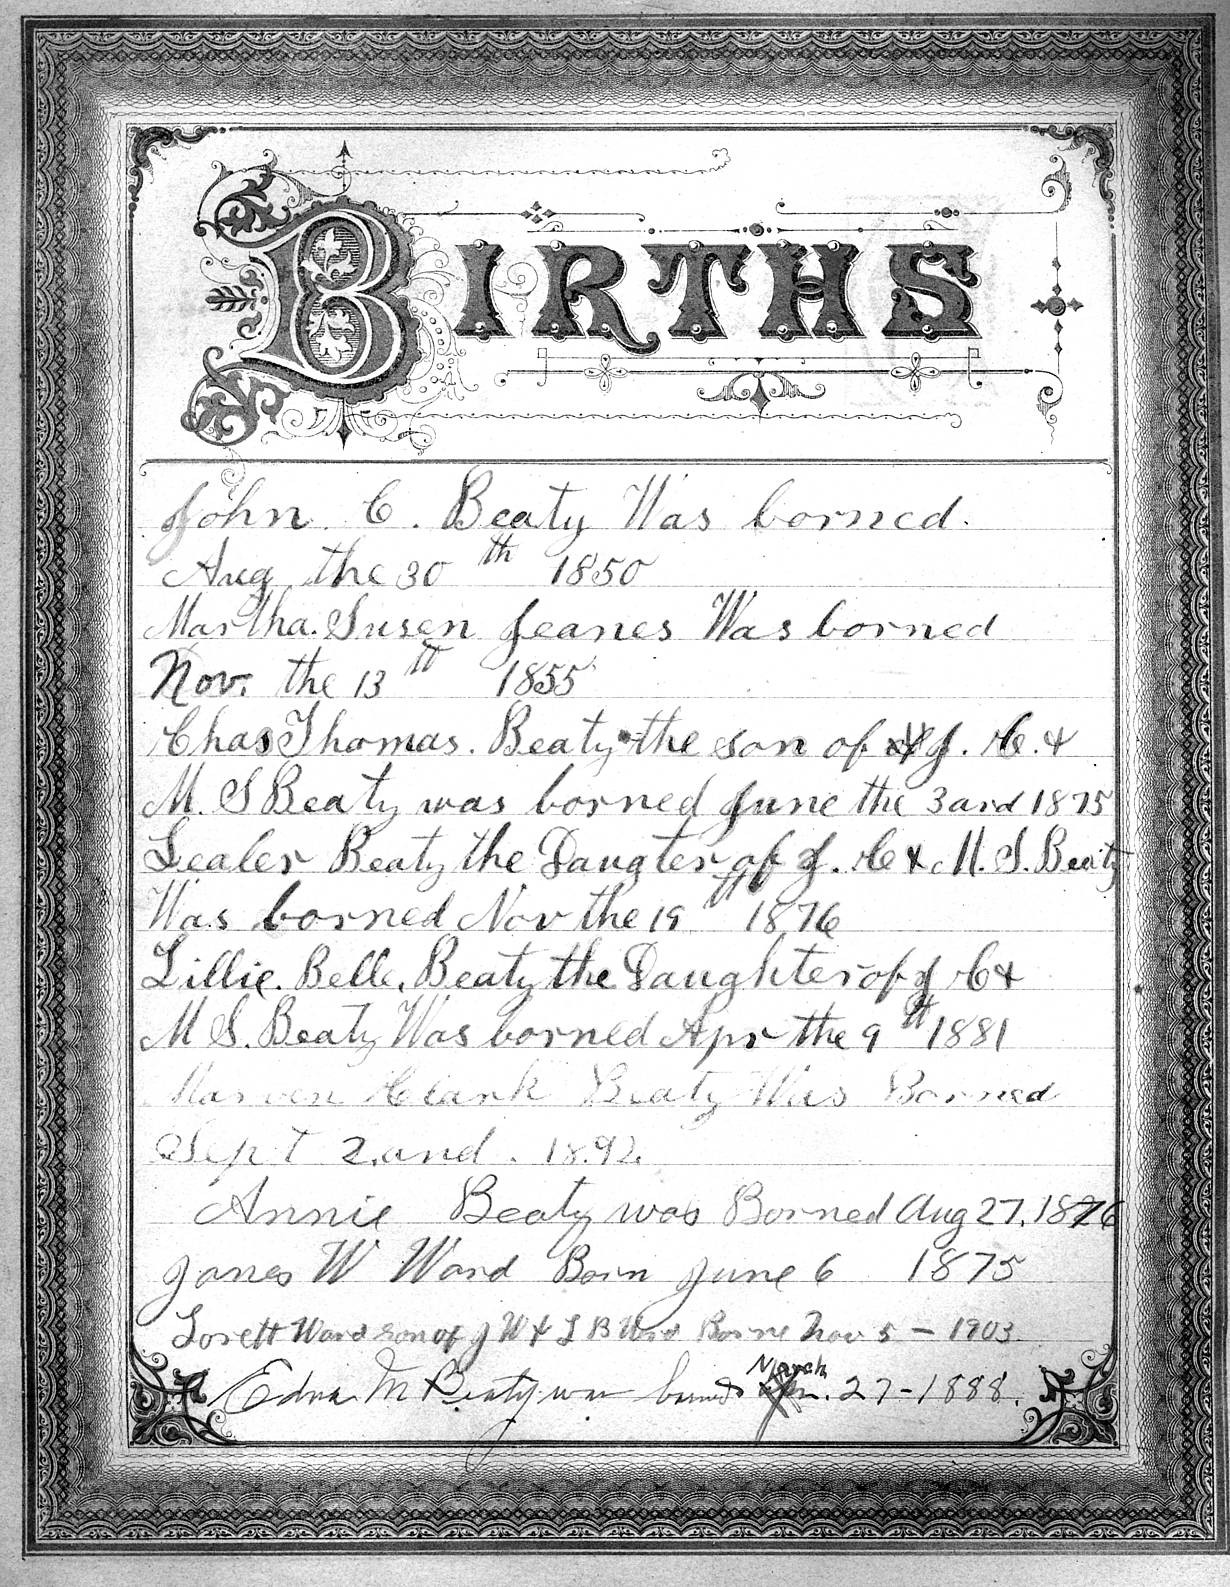 BIRTHS
John C. Beaty Was borned.
Aug the 30th 1850
Martha. Susen Jeanes Was borned
Nov. the 13th 1855
Chas Thomas. Beaty the son of J. C. &
M. S Beaty was borned June the 3ard 1875
Lealer Beaty the Daugter of J. C & M. S. Beaty
Was borned Nov the 19th 1876
Lillie. Belle. Beaty the Daughter of J C &
M S. Beaty Was borned Apr the 9th 1881
Marven Clark Beaty Was Borned
Sept 2,and. 1892.
Annie Beaty was Borned Aug 27, 1876
James W Ward Born June 6 1875
Lorett Ward son of J W & L B Ward Borne Nov 5 - 1903
March
Edna M Beaty was borned 27-1888.